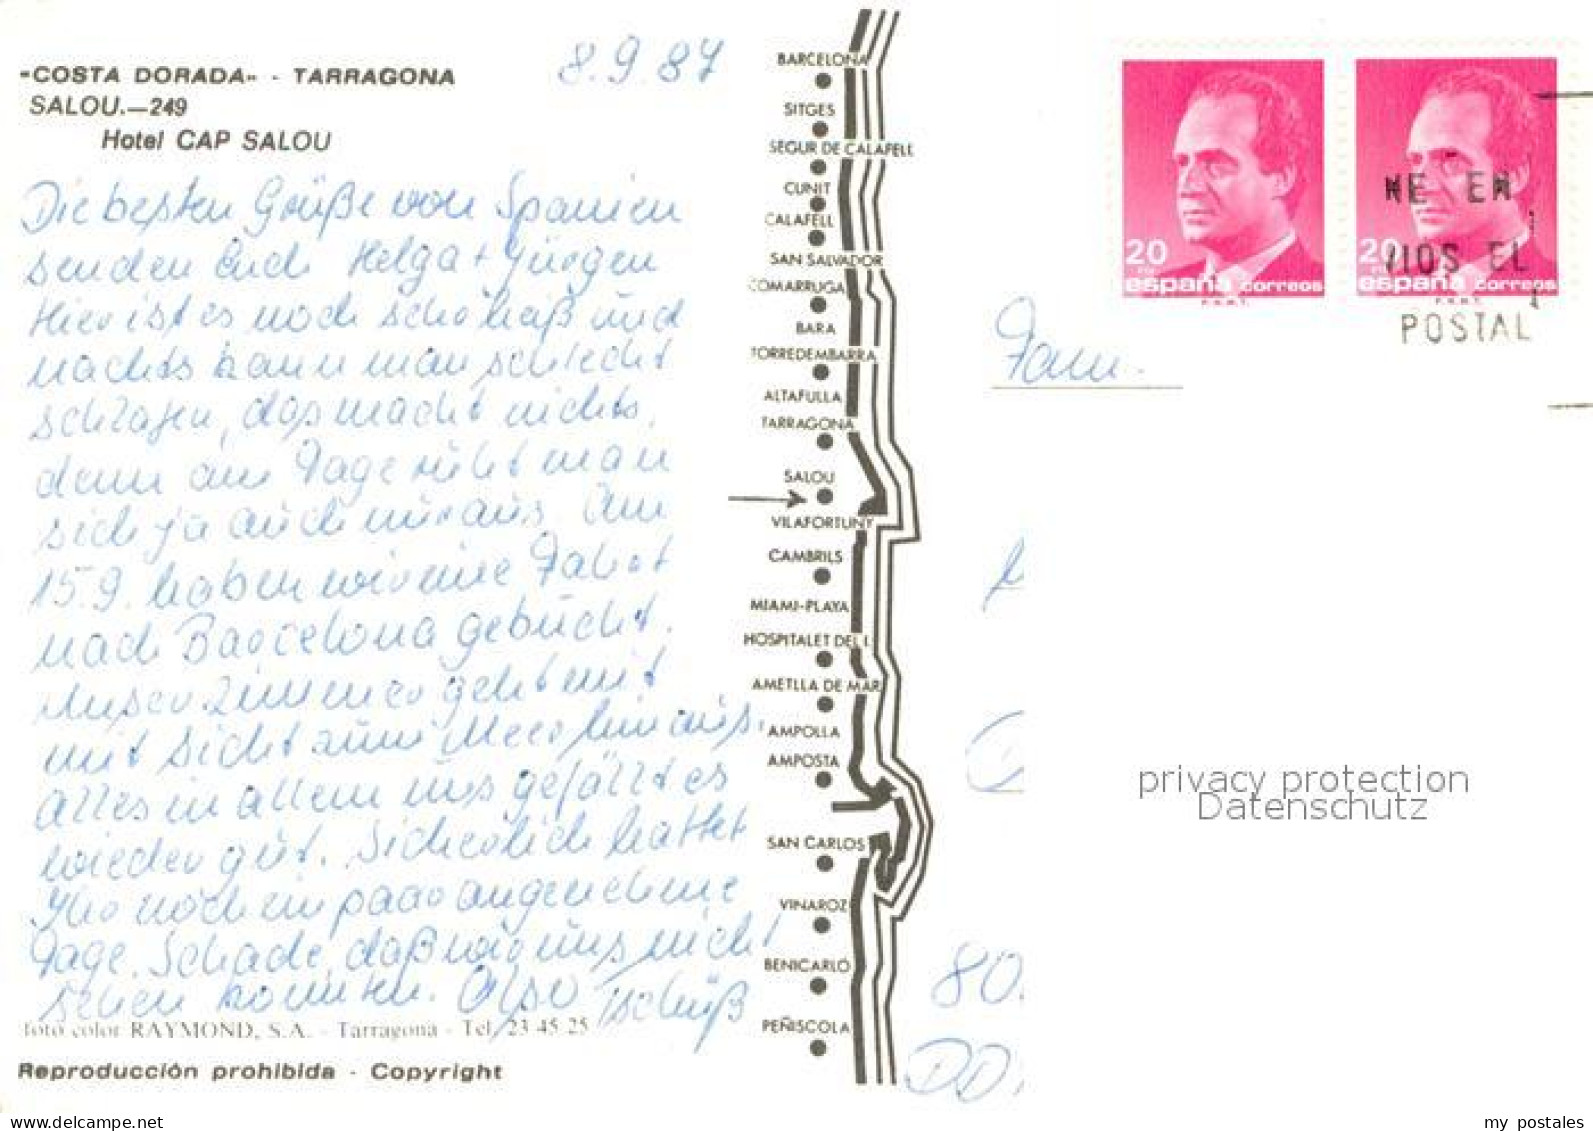 «COSTA DORADA» - TARRAGONA
SALOU.—249
Hotel CAP SALOU
8.9.87
Die besten Grüße von Spanien
senden Euch Helga + Jürgen
Hier ist es noch sehr heiß und
nachts kann man schlecht
schlafen, das macht nichts,
denn am Tage ruht man
sich ja auch nur aus. Am
15.9. haben wir eine Fahrt
nach Barcelona gebucht.
Unser Zimmer geht mit
mit Sicht zum Meer hinaus.
Alles in allem uns gefällt es
wieder gut. Sicherlich hattet
Ihr noch ein paar angenehme
Tage. Schade, daß wir uns nicht
sehen konnten. Also Tschüß
foto color RAYMOND, S.A. - Tarragona - Tel. 23 45 25
Reproducción prohibida - Copyright
BARCELONA
SITGES
SEGUR DE CALAFELL
CUNIT
CALAFELL
SAN SALVADOR
COMARRUGA
BARA
TORREDEMBARRA
ALTAFULLA
TARRAGONA
SALOU
VILAFORTUNY
CAMBRILS
MIAMI-PLAYA
HOSPITALET DEL I.
AMETLLA DE MAR
AMPOLLA
AMPOSTA
SAN CARLOS
VINAROZ
BENICARLO
PEÑISCOLA
20 PTA
españa correos
F.N.M.T.
20 PTA
españa correos
F.N.M.T.
NE EN
NOS EL
POSTAL
Fam.
80.
DD
privacy protection
Datenschutz
my postales
www.delcampe.net